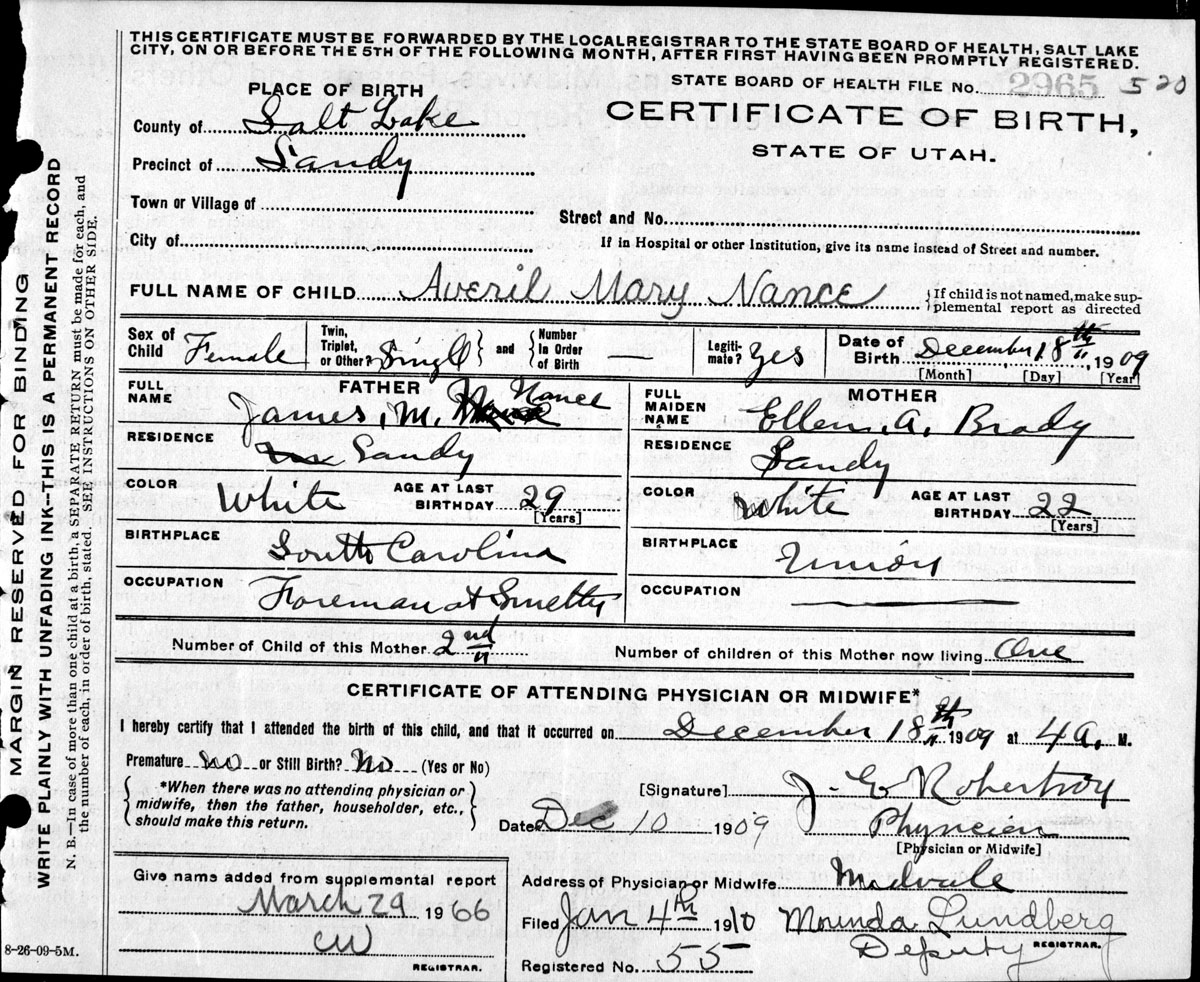 THIS CERTIFICATE MUST BE FORWARDED BY THE LOCALREGISTRAR TO THE STATE BOARD OF HEALTH, SALT LAKE
CITY, ON OR BEFORE THE 5TH OF THE FOLLOWING MONTH, AFTER FIRST HAVING BEEN PROMPTLY REGISTERED.
STATE BOARD OF HEALTH FILE No. 2965 520
PLACE OF BIRTH
CERTIFICATE OF BIRTH,
STATE OF UTAH.
County of Salt Lake
Precinct of Sandy
Town or Village of
Street and No.
City of
If in Hospital or other Institution, give its name instead of Street and number.
FULL NAME OF CHILD Averil Mary Nance {If child is not named, make sup-
plemental report as directed
Sex of Child Female Twin, Triplet, or Other? Singl } and { Number In Order of Birth — Legiti-mate? Yes Date of Birth December 18th, 1909
[Month] [Day] [Year]
FULL NAME FATHER James M. Nance
FULL MAIDEN NAME MOTHER Ellen A. Brady
RESIDENCE Sandy
RESIDENCE Sandy
COLOR White AGE AT LAST BIRTHDAY 29 [Years]
COLOR White AGE AT LAST BIRTHDAY 22 [Years]
BIRTHPLACE South Carolina
BIRTHPLACE Union
OCCUPATION Foreman at Smelty
OCCUPATION —
Number of Child of this Mother 2nd Number of children of this Mother now living One
CERTIFICATE OF ATTENDING PHYSICIAN OR MIDWIFE*
I hereby certify that I attended the birth of this child, and that it occurred on December 18th 1909 at 4 a. M.
Premature No or Still Birth? No (Yes or No)
{ *When there was no attending physician or
midwife, then the father, householder, etc.,
should make this return. }
[Signature] J. E Robertson
Date Dec 10 1909 Physician
[Physician or Midwife]
Give name added from supplemental report
March 29 1966
CW
REGISTRAR.
Address of Physician or Midwife Midvale
Filed Jan 4th 1910 Lundberg
Deputy REGISTRAR.
Registered No. 55
8-26-09-5M.
MARGIN RESERVED FOR BINDING
WRITE PLAINLY WITH UNFADING INK--THIS IS A PERMANENT RECORD
N. B.—In case of more than one child at a birth, a SEPARATE RETURN must be made for each, and
the number of each, in order of birth, stated. SEE INSTRUCTIONS ON OTHER SIDE.